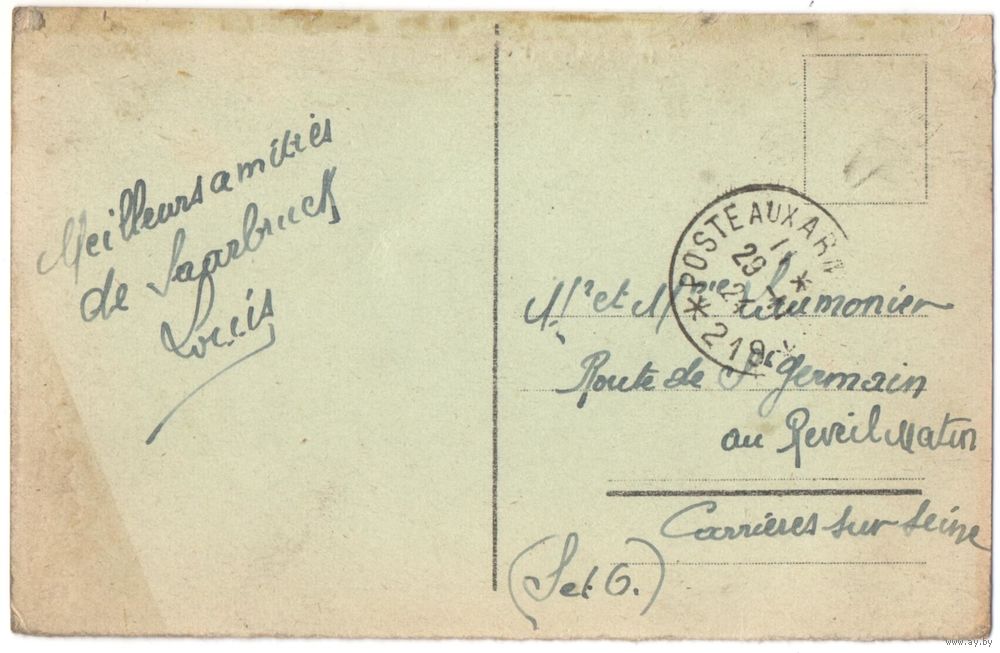 Meilleurs amitiés
de Saarbruck
Louis
* POSTE AUX ARM
11 *
29-
24
* 219
Mr et Mme Laumonier
Route de St germain
au Reveil Matin
Carrières sur Seine
(S et O.)
www.ay.by